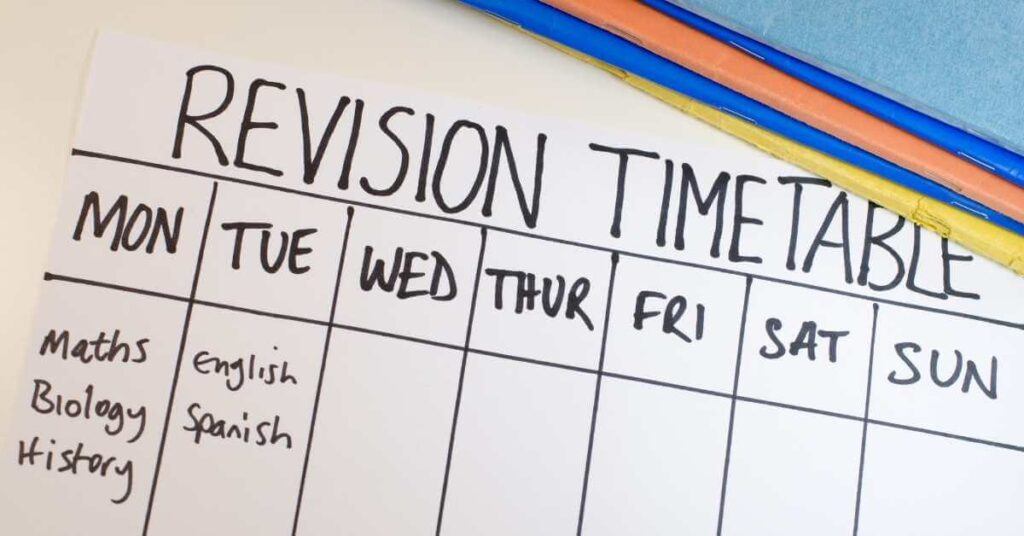 REVISION TIMETABLE
MON TUE WED THUR FRI SAT SUN
Maths English
Biology Spanish
History